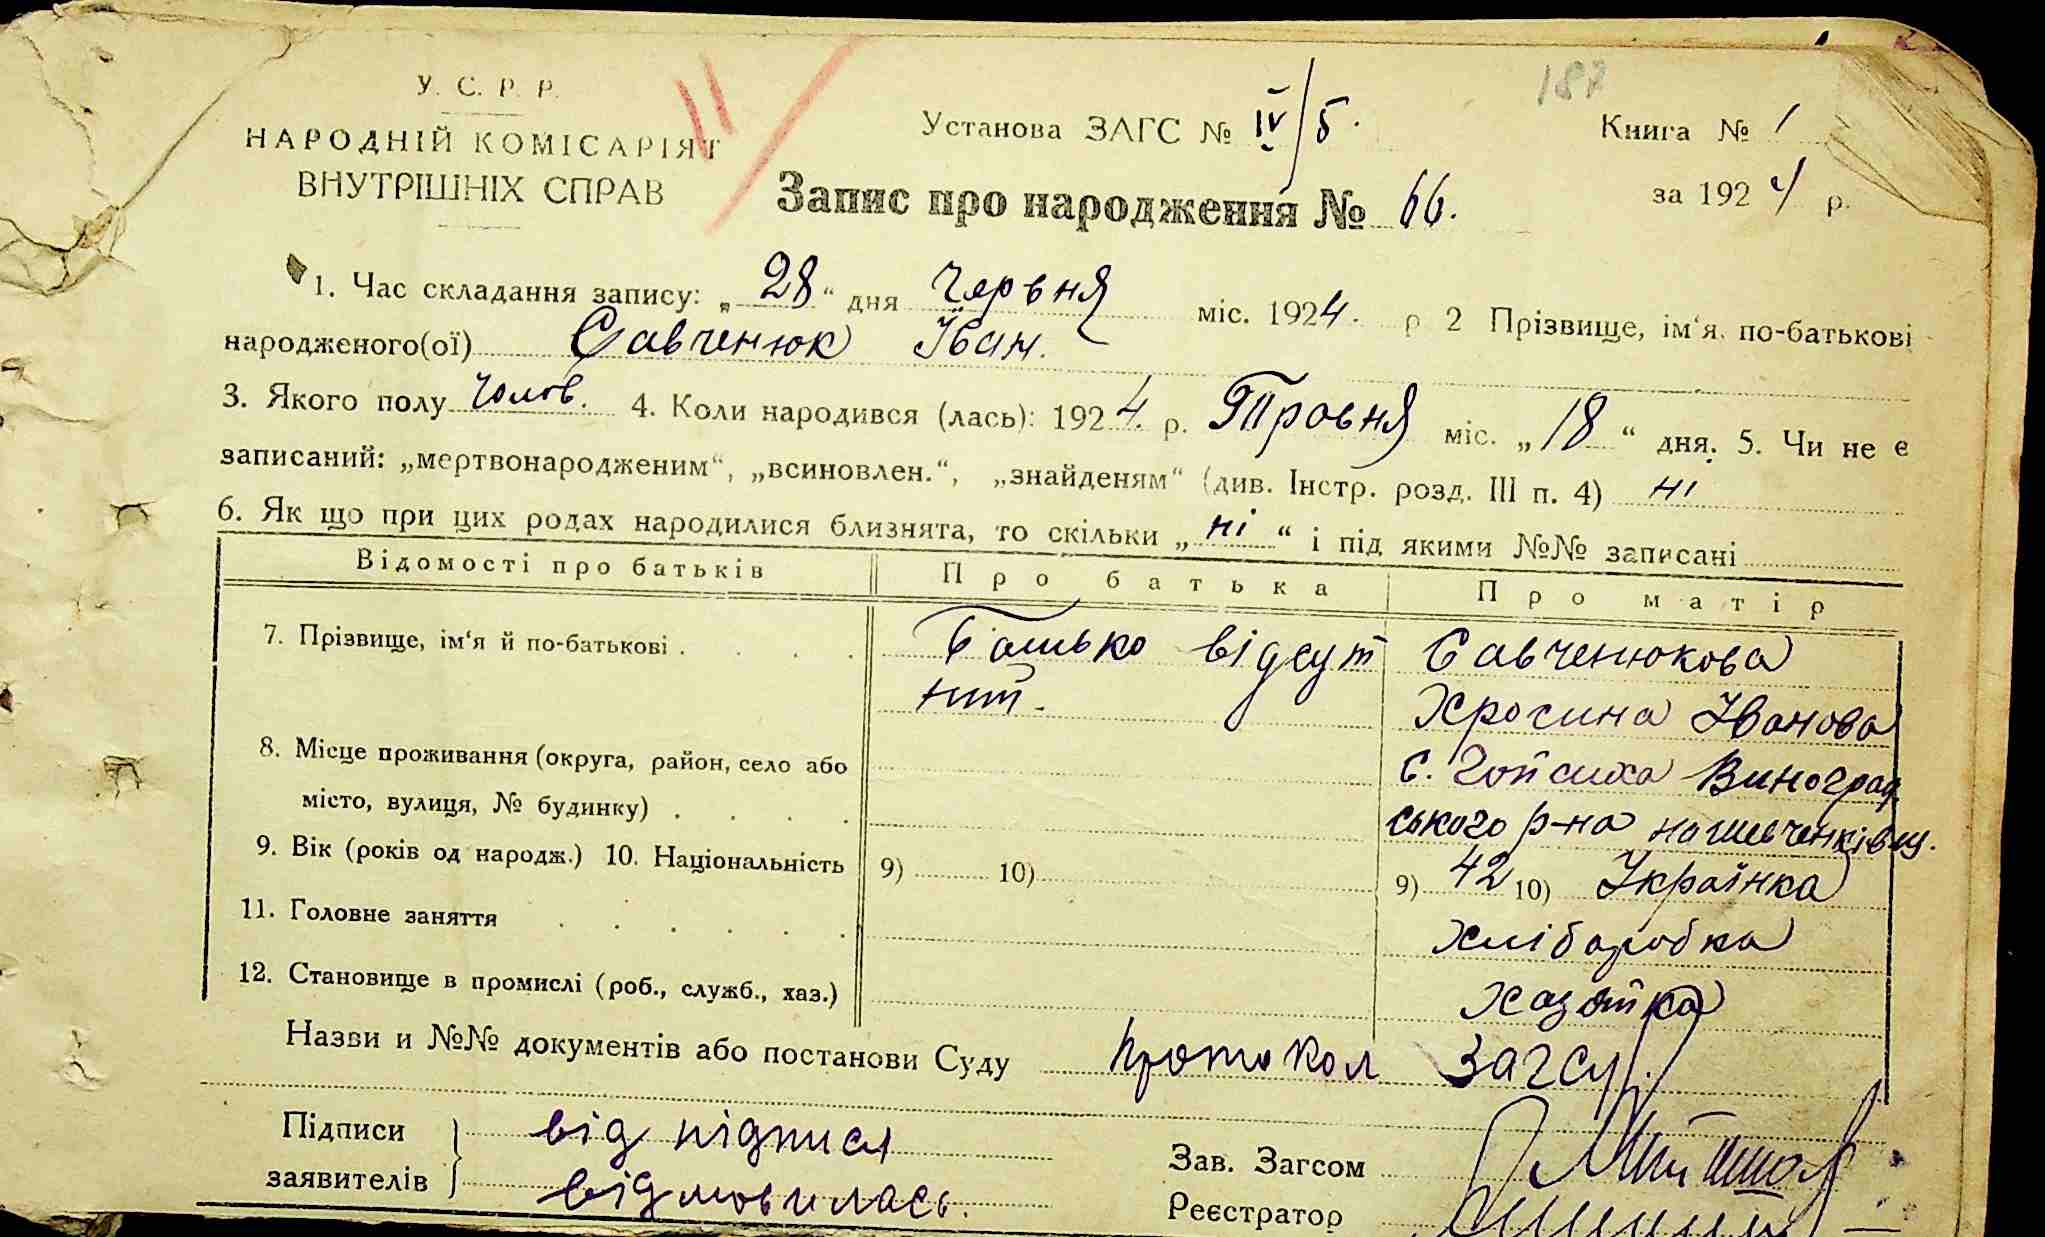 187
У. С. Р. Р.
НАРОДНІЙ КОМІСАРІЯТ
ВНУТРІШНІХ СПРАВ
Установа ЗАГС № IV/5.
Книга № 1
за 1924 р.
Запис про народження № 66.
1. Час складання запису: „28“ дня Червня міс. 1924. р 2 Прізвище, ім‘я, по-батькові
народженого(ої) Савченюк Іван.
3. Якого полу Чолов. 4. Коли народився (лась): 1924. р. Травня міс. „18“ дня. 5. Чи не є
записаний: „мертвонародженим“, „всиновлен.“, „знайденям“ (див. Інстр. розд. III п. 4) ні
6. Як що при цих родах народилися близнята, то скільки „ні“ і під якими №№ записані
Відомості про батьків Про батька Про матір
7. Прізвище, ім‘я й по-батькові . . . . Батько відсут Савченюкова
ній. Хросина Іванова
8. Місце проживання (округа, район, село або с. Чопсиха Виноград
місто, вулиця, № будинку) . . . . ського р-на на Шевченківщ.
9. Вік (років од народж.) 10. Національність 9) 10) 9) 42 10) Українка
11. Головне заняття . . . . . . Хліборобка
12. Становище в промислі (роб., служб., хаз.) Хазятка
Назви и №№ документів або постанови Суду протокол Загсу
Підписи від підписа
заявителів відмовилась.
Зав. Загсом
Реєстратор